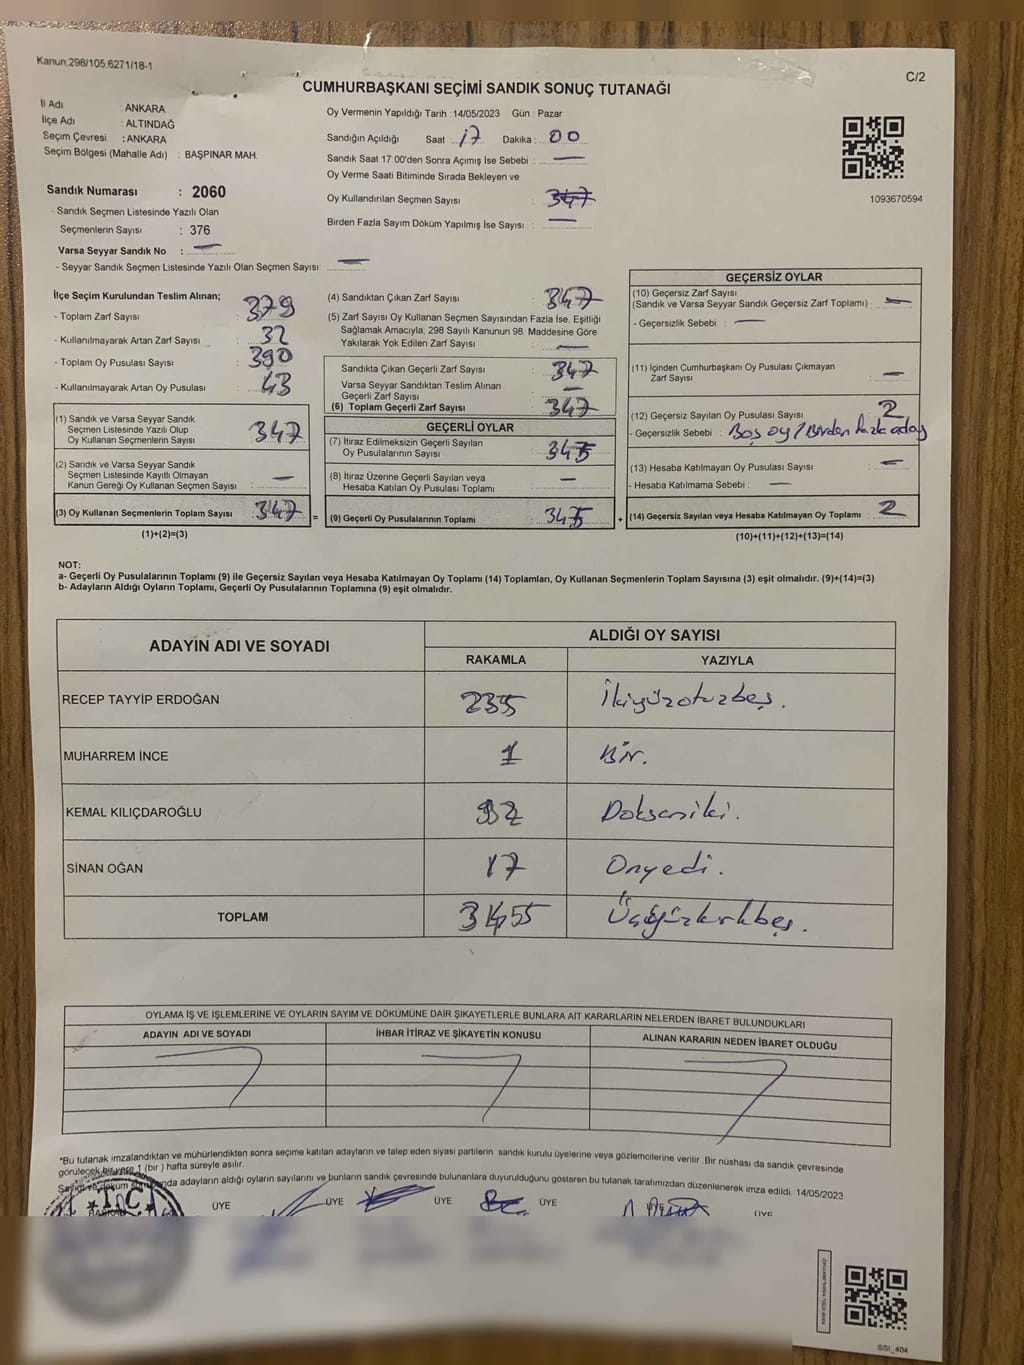 Kanun,298/105,6271/18-1
C/2
CUMHURBAŞKANI SEÇİMİ SANDIK SONUÇ TUTANAĞI
İl Adı : ANKARA
İlçe Adı : ALTINDAĞ
Seçim Çevresi : ANKARA
Seçim Bölgesi (Mahalle Adı) : BAŞPINAR MAH.
Sandık Numarası : 2060
- Sandık Seçmen Listesinde Yazılı Olan
Seçmenlerin Sayısı : 376
Varsa Seyyar Sandık No : —
- Seyyar Sandık Seçmen Listesinde Yazılı Olan Seçmen Sayısı: —
Oy Vermenin Yapıldığı Tarih : 14/05/2023 Gün : Pazar
Sandığın Açıldığı Saat : 17 Dakika : 00
Sandık Saat 17.00'den Sonra Açımış İse Sebebi : —
Oy Verme Saati Bitiminde Sırada Bekleyen ve
Oy Kullandırılan Seçmen Sayısı : 347
Birden Fazla Sayım Döküm Yapılmış İse Sayısı : —
1093670594
İlçe Seçim Kurulundan Teslim Alınan;
- Toplam Zarf Sayısı : 379
- Kullanılmayarak Artan Zarf Sayısı : 32
- Toplam Oy Pusulası Sayısı : 390
- Kullanılmayarak Artan Oy Pusulası : 43
(1) Sandık ve Varsa Seyyar Sandık
Seçmen Listesinde Yazılı Olup
Oy Kullanan Seçmenlerin Sayısı : 347
(2) Sandık ve Varsa Seyyar Sandık
Seçmen Listesinde Kayıtlı Olmayan
Kanun Gereği Oy Kullanan Seçmen Sayısı : —
(3) Oy Kullanan Seçmenlerin Toplam Sayısı : 347 =
(1)+(2)=(3)
(4) Sandıktan Çıkan Zarf Sayısı : 347
(5) Zarf Sayısı Oy Kullanan Seçmen Sayısından Fazla İse, Eşitliği
Sağlamak Amacıyla; 298 Sayılı Kanunun 98. Maddesine Göre
Yakılarak Yok Edilen Zarf Sayısı : —
Sandıkta Çıkan Geçerli Zarf Sayısı : 347
Varsa Seyyar Sandıktan Teslim Alınan
Geçerli Zarf Sayısı : —
(6) Toplam Geçerli Zarf Sayısı : 347
GEÇERLİ OYLAR
(7) İtiraz Edilmeksizin Geçerli Sayılan
Oy Pusulalarının Sayısı : 345
(8) İtiraz Üzerine Geçerli Sayılan veya
Hesaba Katılan Oy Pusulası Toplamı : —
(9) Geçerli Oy Pusulalarının Toplamı : 345 +
GEÇERSİZ OYLAR
(10) Geçersiz Zarf Sayısı
(Sandık ve Varsa Seyyar Sandık Geçersiz Zarf Toplamı) : —
- Geçersizlik Sebebi : —
(11) İçinden Cumhurbaşkanı Oy Pusulası Çıkmayan
Zarf Sayısı : —
(12) Geçersiz Sayılan Oy Pusulası Sayısı : 2
- Geçersizlik Sebebi : Boş oy / Birden fazla aday
(13) Hesaba Katılmayan Oy Pusulası Sayısı : —
- Hesaba Katılmama Sebebi : —
(14) Geçersiz Sayılan veya Hesaba Katılmayan Oy Toplamı : 2
(10)+(11)+(12)+(13)=(14)
NOT:
a- Geçerli Oy Pusulalarının Toplamı (9) ile Geçersiz Sayılan veya Hesaba Katılmayan Oy Toplamı (14) Toplamları, Oy Kullanan Seçmenlerin Toplam Sayısına (3) eşit olmalıdır. (9)+(14)=(3)
b- Adayların Aldığı Oyların Toplamı, Geçerli Oy Pusulalarının Toplamına (9) eşit olmalıdır.
ADAYIN ADI VE SOYADI ALDIĞI OY SAYISI
RAKAMLA YAZIYLA
RECEP TAYYİP ERDOĞAN 235 İkiyüzotuzbeş.
MUHARREM İNCE 1 Bir.
KEMAL KILIÇDAROĞLU 92 Doksaniki.
SİNAN OĞAN 17 Onyedi.
TOPLAM Üçyüzkırkbeş.
OYLAMA İŞ VE İŞLEMLERİNE VE OYLARIN SAYIM VE DÖKÜMÜNE DAİR ŞİKAYETLERLE BUNLARA AİT KARARLARIN NELERDEN İBARET BULUNDUKLARI
ADAYIN ADI VE SOYADI İHBAR İTİRAZ VE ŞİKAYETİN KONUSU ALINAN KARARIN NEDEN İBARET OLDUĞU
*Bu tutanak imzalandıktan ve mühürlendikten sonra seçime katılan adayların ve talep eden siyasi partilerin sandık kurulu üyelerine veya gözlemcilerine verilir .Bir nüshası da sandık çevresinde
görülecek bir yere 1 (bir ) hafta süreyle asılır.
adayların aldığı oyların sayılarını ve bunların sandık çevresinde bulunanlara duyurulduğunu gösteren bu tutanak tarafımızdan düzenlenerek imza edildi. 14/05/2023
T.C.
ÜYE ÜYE ÜYE ÜYE ÜYE
SSI_404